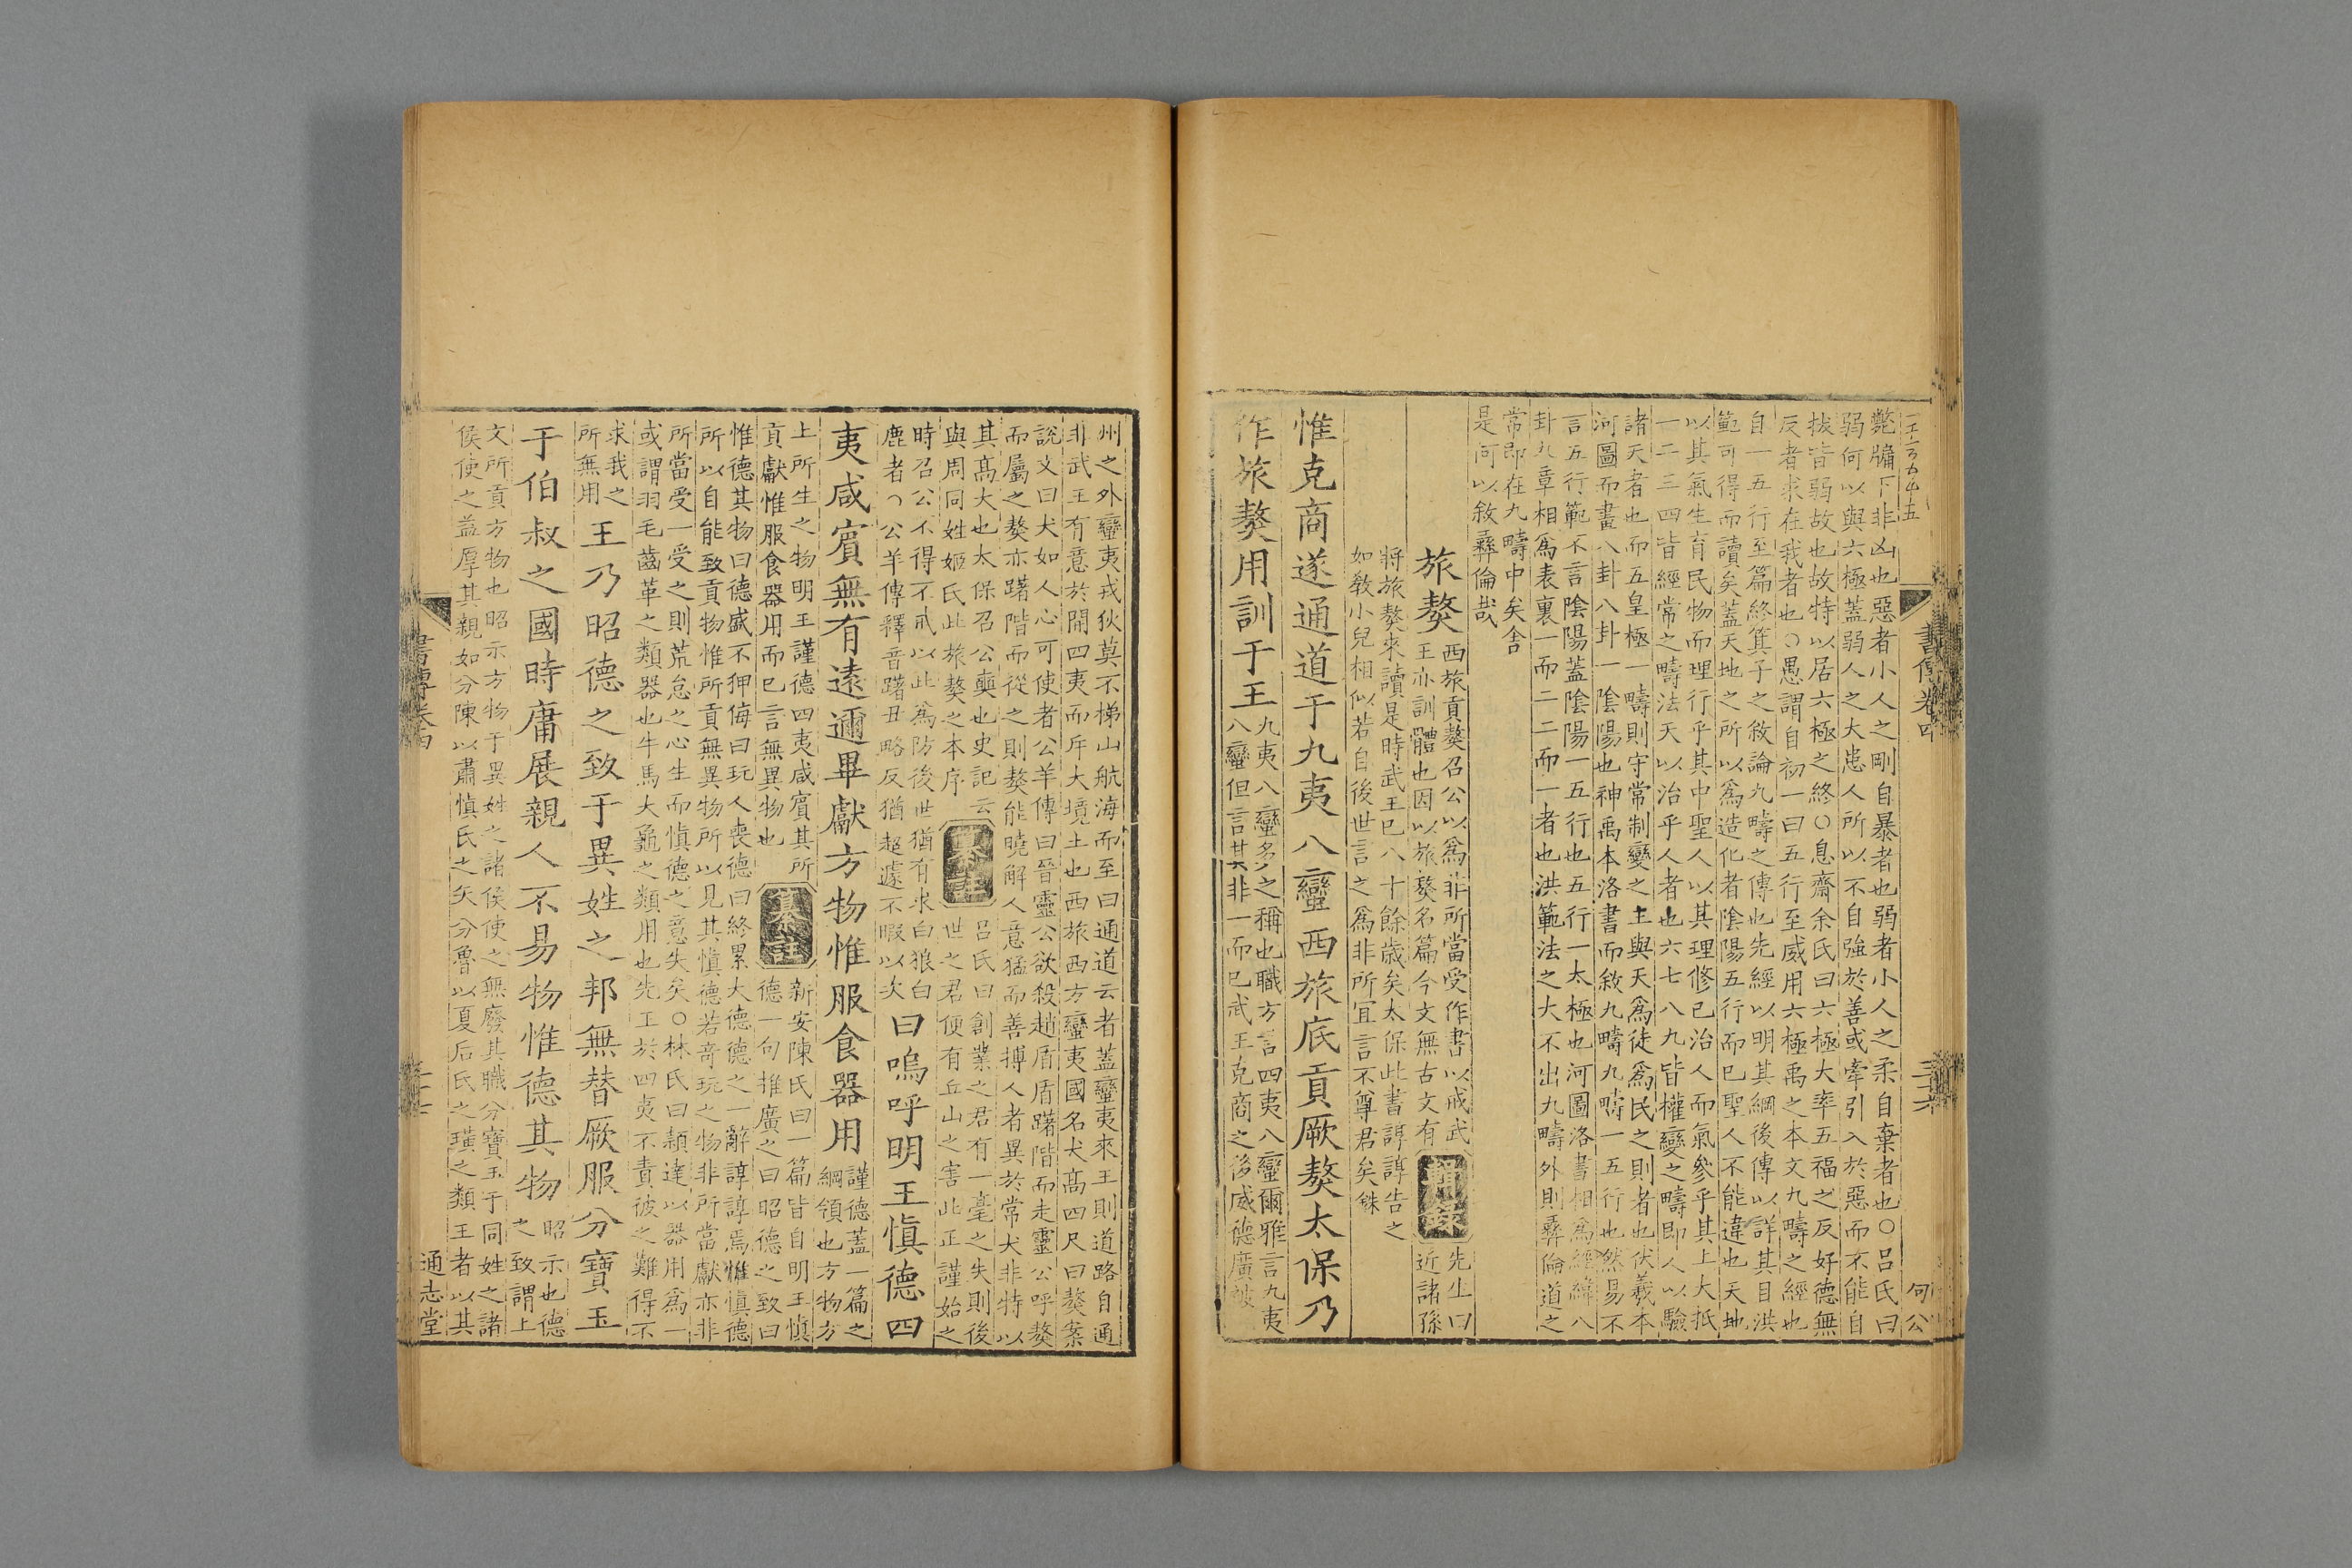 斃牖下非凶也惡者小人之剛自暴者也弱者小人之柔自棄者也○吕氏曰
弱何以與六極蓋弱人之大患人所以不自強於善或牽引入於惡而不能自
拔皆弱故也故特以居六極之終○息齋余氏曰六極大率五福之反好德無
反者求在我者也○愚謂自初一曰五行至威用六極禹之本文九疇之經也
自一五行至篇終箕子之敘論九疇之傳也先經以明其綱後傳以詳其目洪
範可得而讀矣蓋天地之所以爲造化者陰陽五行而已聖人不能違也天地
以其氣生育民物而理行乎其中聖人以其理修已治人而氣參乎其上大抵
一二三四皆經常之疇法天以治乎人者也六七八九皆權變之疇即人以驗
諸天者也而五皇極一疇則守常制變之主與天爲徒爲民之則者也伏羲本
河圖而畫八卦八卦一陰陽也神禹本洛書而敘九疇九疇一五行也然易不
言五行範不言陰陽蓋陰陽一五行也五行一太極也河圖洛書相爲經緯八
卦九章相爲表裏一而二二而一者也洪範法之大不出九疇外則彝倫道之
常即在九疇中矣舍
是何以敘彝倫哉
旅獒
西旅貢獒召公以爲非所當受作書以戒武
王亦訓體也因以旅獒名篇今文無古文有
輯錄
先生曰
近諸孫
將旅獒來讀是時武王已八十餘歲矣太保此書諄諄告之
如教小兒相似若自後世言之爲非所宜言不尊君矣銖
惟克商遂通道于九夷八蠻西旅底貢厥獒太保乃
作旅獒用訓于王
九夷八蠻多之稱也職方言四夷八蠻爾雅言九夷
八蠻但言其非一而已武王克商之後威德廣被
書傳卷四
州之外蠻夷戎狄莫不梯山航海而至曰通道云者蓋蠻夷來王則道路自通
非武王有意於開四夷而斥大境土也西旅西方蠻夷國名犬高四尺曰獒案
說文曰犬如人心可使者公羊傳曰晉靈公欲殺趙盾盾躇階而走靈公呼獒
而屬之獒亦躇階而從之則獒能曉解人意猛而善搏人者異於常犬非特以
其高大也太保召公奭也史記云
與周同姓姬氏此旅獒之本序
纂註
吕氏曰創業之君有一毫之失則後
世之君便有丘山之害此正謹始之
時召公不得不戒以此爲防後世猶有求白狼白
鹿者○公羊傳釋音躇丑略反猶超遽不暇以次
曰嗚呼明王愼德四
夷咸賓無有遠邇畢獻方物惟服食器用
謹德蓋一篇之
綱領也方物方
上所生之物明王謹德四夷咸賓其所
貢獻惟服食器用而已言無異物也
纂註
新安陳氏曰一篇皆自明王愼
德一句推廣之曰昭德之致曰
惟德其物曰德盛不狎侮曰玩人喪德曰終累大德德之一辭諄諄焉惟愼德
所以自能致貢物惟所貢無異物所以見其愼德若奇玩之物非所當獻亦非
所當受一受之則荒怠之心生而愼德之意失矣○林氏曰顈達以器用爲一
或謂羽毛齒革之類器也牛馬大龜之類用也先王於四夷不責彼之難得不
求我之
所無用
王乃昭德之致于異姓之邦無替厥服分寶玉
于伯叔之國時庸展親人不易物惟德其物
昭示也德
之致謂上
文所貢方物也昭示方物于異姓之諸侯使之無廢其職分寶玉于同姓之諸
侯使之益厚其親如分陳以肅愼氏之矢分魯以夏后氏之璜之類王者以其
書傳卷四
通志堂